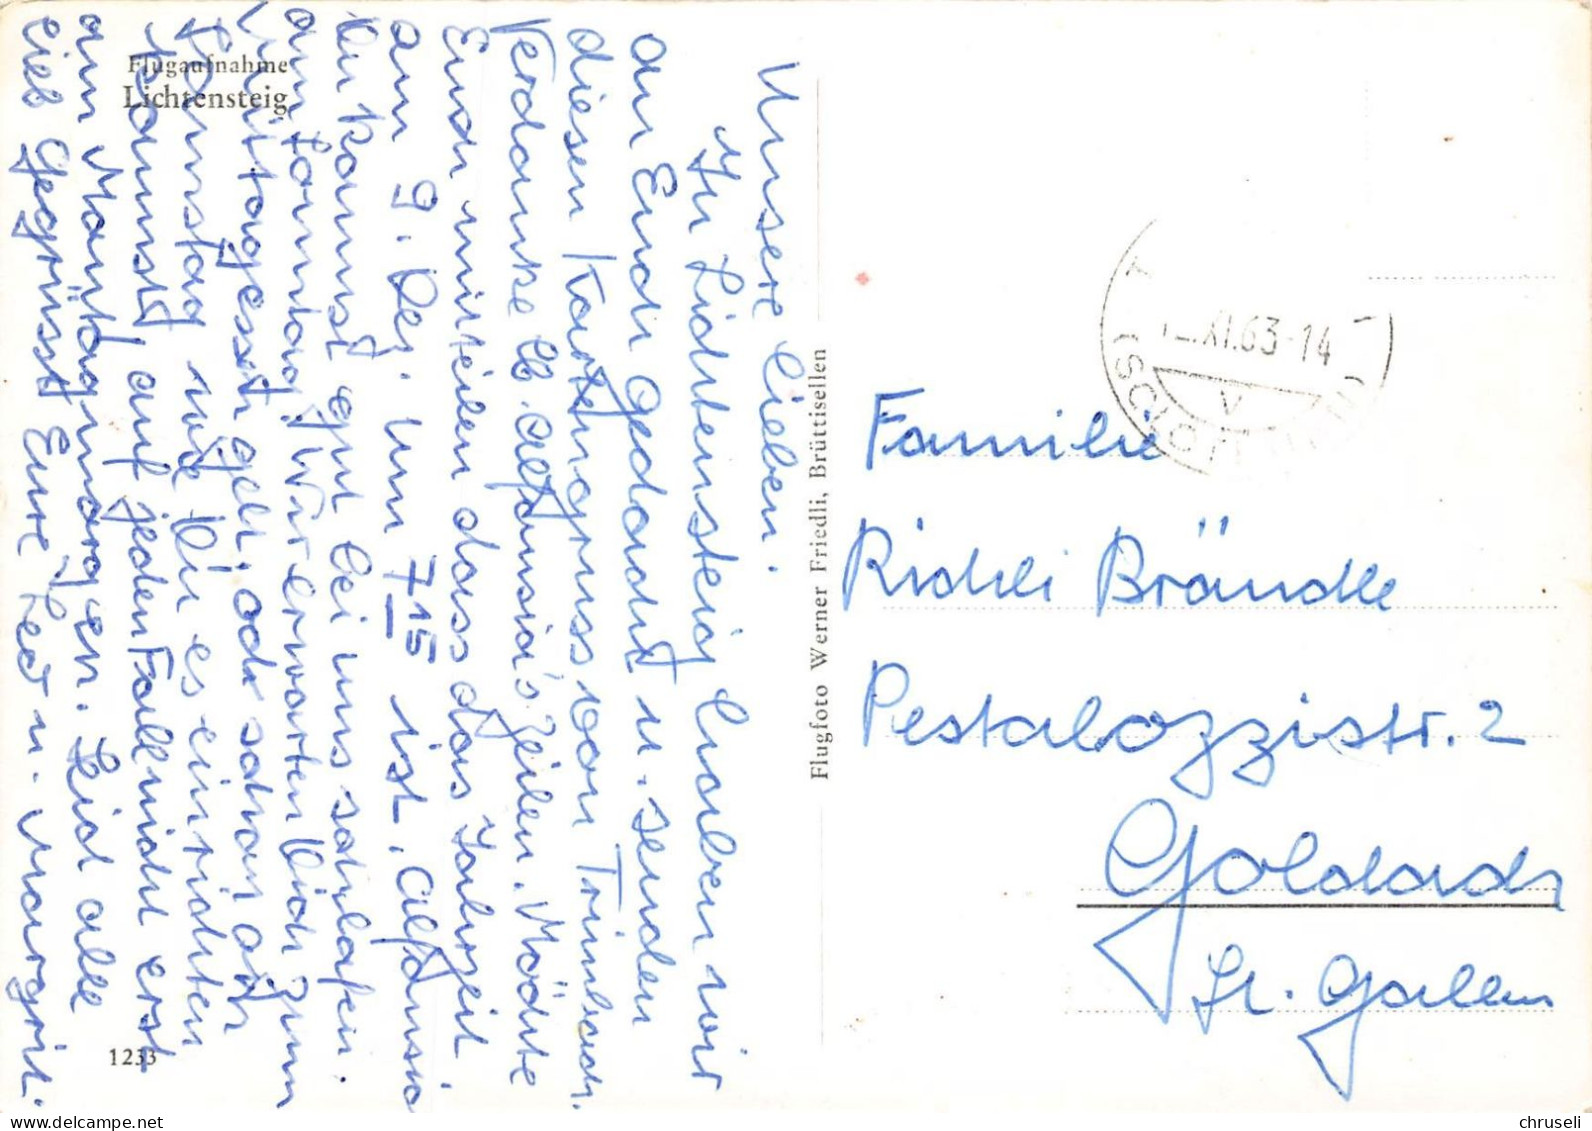 Flugaufnahme
Lichtensteig
Unsere Lieben.
In Lichtensteig haben wir
an Euch gedacht u. senden
diesen Kartengruss von Trimbach.
Verdanke lb. Alfonsia's Zeilen. Möchte
Euch mitteilen dass das Jahrzeit
am 9. Dez. um 715 ist. Alfonsia
Du kannst gut bei uns schlafen.
am Sonntag. Wir erwarten Dich zum
Mittagessen gelt, oder schon am
Samstag wie Du es einrichten
kannst, auf jeden Fall nicht erst
am Montagmorgen. Seid alle
lieb gegrüsst Eure Leo u. Margrit.
1233
Flugfoto Werner Friedli, Brüttisellen
XI.63-14
Familie
Richli Brändle
Pestalozzistr. 2
Goldach
St. Gallen
chruseli